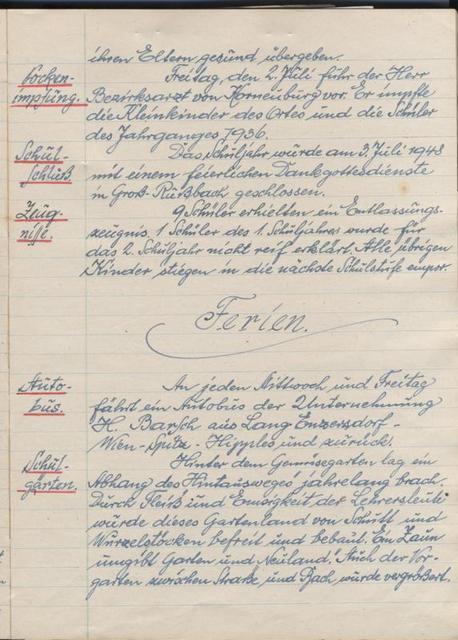 ihren Eltern gesund übergeben.
Pocken-
impfung.
Freitag, den 2. Juli fuhr der Herr
Bezirksarzt von Korneuburg vor. Er impfte
die Kleinkinder des Ortes und die Schüler
des Jahrganges 1936.
Schul-
schluß
Das Schuljahr wurde am 3. Juli 1948
mit einem feierlichen Dankgottesdienste
in Groß-Rußbach geschlossen.
Zeug-
nisse.
9 Schüler erhielten ein Entlassungs-
zeugnis. 1 Schüler des 1. Schuljahres wurde für
das 2. Schuljahr nicht reif erklärt. Alle übrigen
Kinder stiegen in die nächste Schulstufe empor.
Ferien.
Auto-
bus.
An jeden Mittwoch und Freitag
fährt ein Autobus der Unternehmung
H. Barsch aus Lang Enzersdorf-
Wien-Spitz-Hipples und zurück!
Schul-
garten.
Hinter dem Gemüsegarten lag ein
Abhang des Hintausweges jahrelang brach.
Durch Fleiß und Emsigkeit der Lehrersleute
würde dieses Gartenland von Schutt und
Wurzelstöcken befreit und bebaut. Ein Zaun
umgibt Garten und Neuland! Auch der Vor-
garten zwischen Straße und Bach wurde vergrößert.